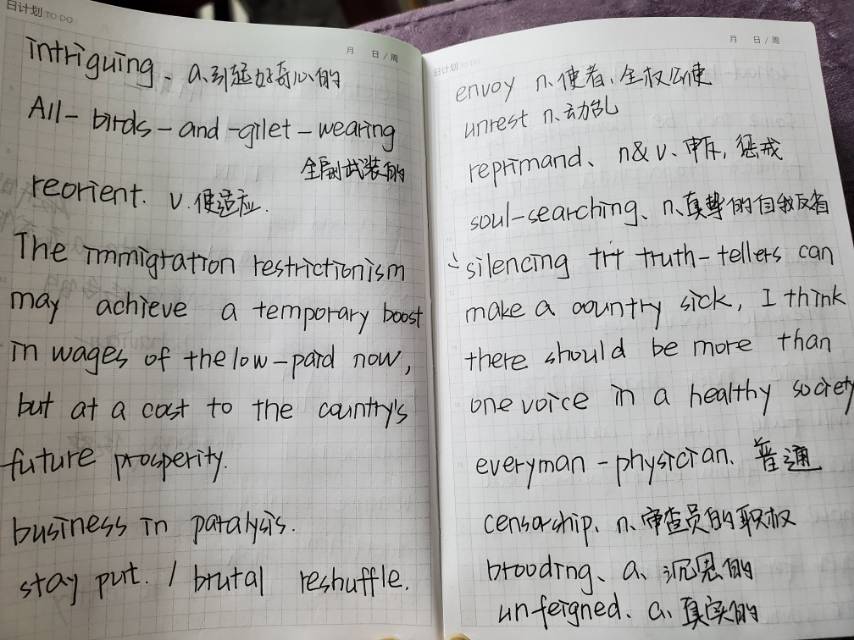 日计划 TO DO
月 日/周
intriguing. a.引起好奇心的
All-birds-and-gilet-wearing
全副武装的
reorient. v.使适应.
The immigration restrictionism
may achieve a temporary boost
in wages of the low-paid now,
but at a cost to the country's
future prosperity.
business in paralysis.
stay put. / brutal reshuffle.
日计划 TO DO
月 日/周
envoy n.使者、全权公使
unrest n.动乱
reprimand、n&v.申斥,惩戒
soul-searching、n.真挚的自我反省
silencing truth-tellers can
make a country sick, I think
there should be more than
one voice in a healthy society
everyman-physician. 普通
censorship. n.审查员的职权
brooding、a.沉思的
unfeigned. a.真实的